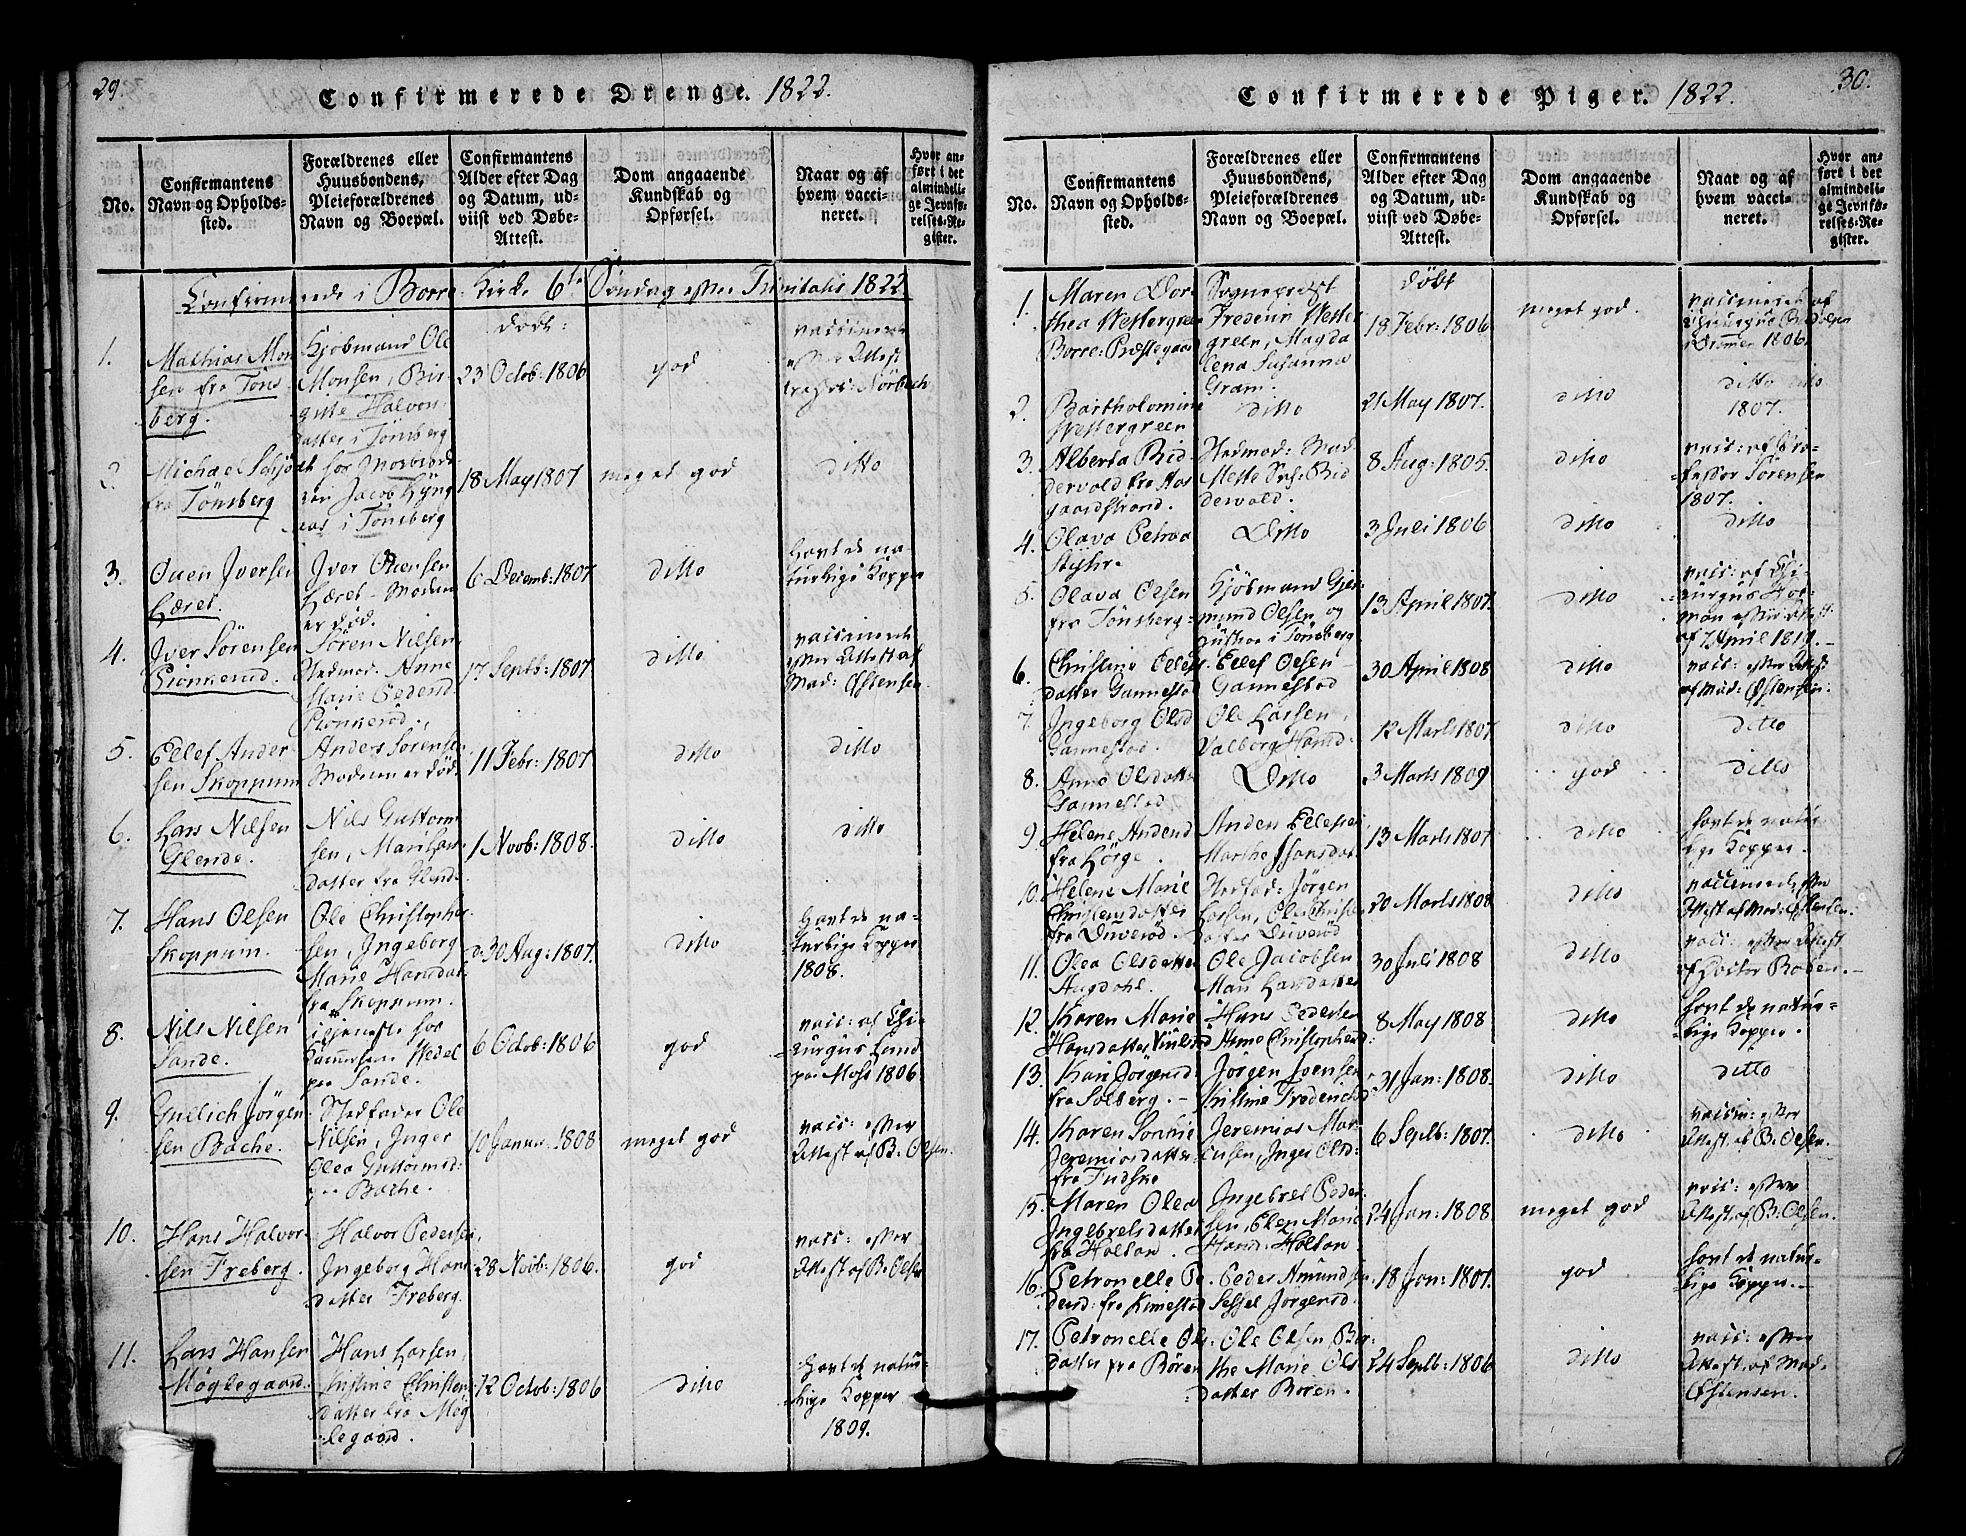 29.
Confirmerede Drenge. 1822.
No.
Confirmantens
Navn og Opholds-
sted.
Forældrenes eller
Huusbondens,
Pleieforældrenes
Navn og Boepæl.
Confirmantens
Alder efter Dag
og Datum, ud-
viist ved Døbe-
Attest.
Dom angaaende
Kundskab og
Opførsel.
Naar og af
hvem vacci-
neret.
Hvor an-
ført i det
almindeli-
ge Jevnfø-
relses-Re-
gister.
Confirmerede i Borre Kirke 6te Søndag efter Trinitatis 1822
1.
Mathias Mon
sen fra Tøns
berg.
Kjøbmand Ole
Monsen, Bir
gitte Halvor
datter i Tønsberg
døbt:
23 Octob: 1806
god
vaccineret
efter Attest
2.
Michael
fra Tønsberg
hos Morbrode
ren Jacob Lyng
aas i Tønsberg
18 May 1807
meget god
ditto
3.
Ouen Iversen
Læret.
Iver Ouensen
Læret - Moderen
er død.
6 Decemb: 1807
ditto
havt de na-
turlige Kopper
4.
Iver Sørensen
Søren Nilsen
Anne
Marie Pedersd
17 Septb: 1807
ditto
vaccineret
efter Attest af
Mad: Østensen.
5.
Ellef Ander
sen Skoppum
Anders Sørensen
Moderen er død.
11 Febr: 1807
ditto
ditto
6.
Lars Nilsen
Glende.
Nils Guttorm
sen, Mari
datter fra Glende
1 Novb: 1808.
ditto
ditto
7.
Hans Olsen
Skoppum.
Ole Christopher
sen, Ingeborg
Marie Hansdat
fra Skoppum.
30 Aug: 1807.
ditto
havt de na-
turlige Kopper
1808.
8.
Nils Nilsen
Sande.
i tjeneste hos
Wedel
paa Sande.
6 Octob: 1806
god
vacc: af Chi-
rurgus Lund
paa Moss 1806.
9.
Gullich Jørgen
sen Bache.
Stedfader Ole
Nilsen, Inger
Olea Guttormsd:
paa Bache.
10 Januar 1808
meget god
vacc: efter
Attest af B. Olsen.
10.
Hans Halvor-
sen Freberg.
Halvor Pedersen,
Ingeborg Hans
datter Freberg.
28 Novb: 1806.
god
vacc: efter
Attest af B. Olsen
11.
Lars Hansen
Møglegaard.
Hans Larsen,
Kirstine Christen
datter fra Møg
legaard.
12 Octob: 1806
ditto
havt de natur-
lige Kopper
1809.
30.
Confirmerede Piger. 1822.
No.
Confirmantens
Navn og Opholds-
sted.
Forældrenes eller
Huusbondens,
Pleieforældrenes
Navn og Boepæl.
Confirmantens
Alder efter Dag
og Datum, ud-
viist ved Døbe-
Attest.
Dom angaaende
Kundskab og
Opførsel.
Naar og af
hvem vacci-
neret.
Hvor an-
ført i det
almindeli-
ge Jevnfø-
relses-Re-
gister.
1.
Maren Doro
thea Westergreen
Borre Præstegaard
Sogneprest
Frederik Wester
green, Magda
lena Susanna
Gram.
døbt
18 Febr: 1806
meget god.
vaccineret af
Chirurgus
i Drammen 1806.
2.
Bartholomine
Westergreen
ditto
21 May 1807.
ditto
ditto ditto
1807.
3.
Alberta Bid
dervold fra Aas
gaardstrand.
Mad
Mette Bid
dervold.
8 Aug: 1805.
ditto
vacc: af Pro-
fessor Sørensen
1807.
4.
Olava Petrea
Ditto
3 Juli 1806
ditto
ditto
5.
Olava Olsen
fra Tønsberg
Kjøbmand Gjer
mund Olsen og
Hustroe i Tønsberg
13 April 1807.
ditto
vacc: af Chi-
rurgus Hof-
man efter Attest
af 7 April 1819.
6.
Christine Ellefs
datter Gannestad
Ellef Olsen
Gannestad
30 April 1808
ditto
vacc: efter Attest
af Mad: Østensen.
7.
Ingeborg Olsd
Gannestad.
Ole Larsen,
Valborg Hansd.
12 Marts 1807
ditto
ditto
8.
Anne Olsdatter
Gannestad
Ditto
3 Marts 1809
god
ditto
9.
Helene Andersd
fra Lørge.
Anders Ellefsen
Marthe Hansdat
13 Marts 1807
ditto
havt de natur-
lige Kopper.
10.
Helene Marie
Christensdatter
fra Duverød.
Jørgen
Larsen,
datter Duverød
20 Marts 1808
ditto
vaccineret efter
Attest af Mad: Østensen.
11.
Olea Olsdatter
Augdahl.
Ole Jacobsen
Mari Larsdatter
30 Juli 1808
ditto
vacc: efter Attest
af Doctor Boben.
12.
Karen Marie
Hansdatter
Hans Pedersen
Anne Christophersd:
8 May 1808
ditto
havt de natur-
lige Kopper.
13.
Kari Jørgensd
fra Solberg.
Jørgen Ivensen
Kirstine Fredericksd
31 Jan: 1808.
ditto
ditto
14.
Karen Sophie
Jeremiasdatter
fra
Jeremias Mar
tensen, Inger Olsd
6 Septb: 1807.
ditto
vaccin: efter
Attest af B. Olsen.
15.
Maren Olea
Ingebretsdatter
fra Holtan.
Ingebret Peder
sen, Elen Marie
Hansd: Holtan.
24 Jan: 1808
meget god
vacc: efter
Attest af B. Olsen.
16.
Petronelle Pe
dersd: fra
Peder Amundsen
Sessel Jørgensd.
18 Jan: 1807.
god
havt de natur-
lige Kopper.
17.
Petronelle Ols
datter fra Børen
Ole Olsen, Ber
the Marie Ols
datter Børen.
24 Septb: 1806
ditto
vacc: efter
Attest af Mad:
Østensen.